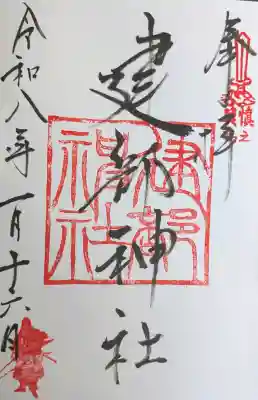 奉拝
建部神社
建部
神社
令和八年一月十六日